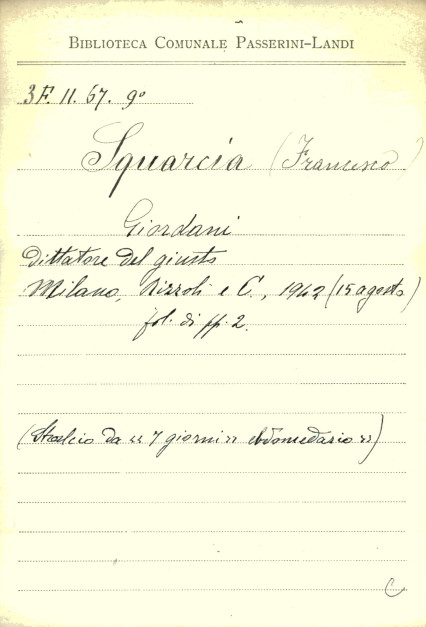 BIBLIOTECA COMUNALE PASSERINI-LANDI
3F. 11. 67. 9º
Squarcia (Francesco)
Giordani
dittatore del giusto
Milano, Rizzoli e C., 1942 (15 agosto)
fol. di pp. 2.
(Stralcio da « 7 giorni » ebdomedario »)
C